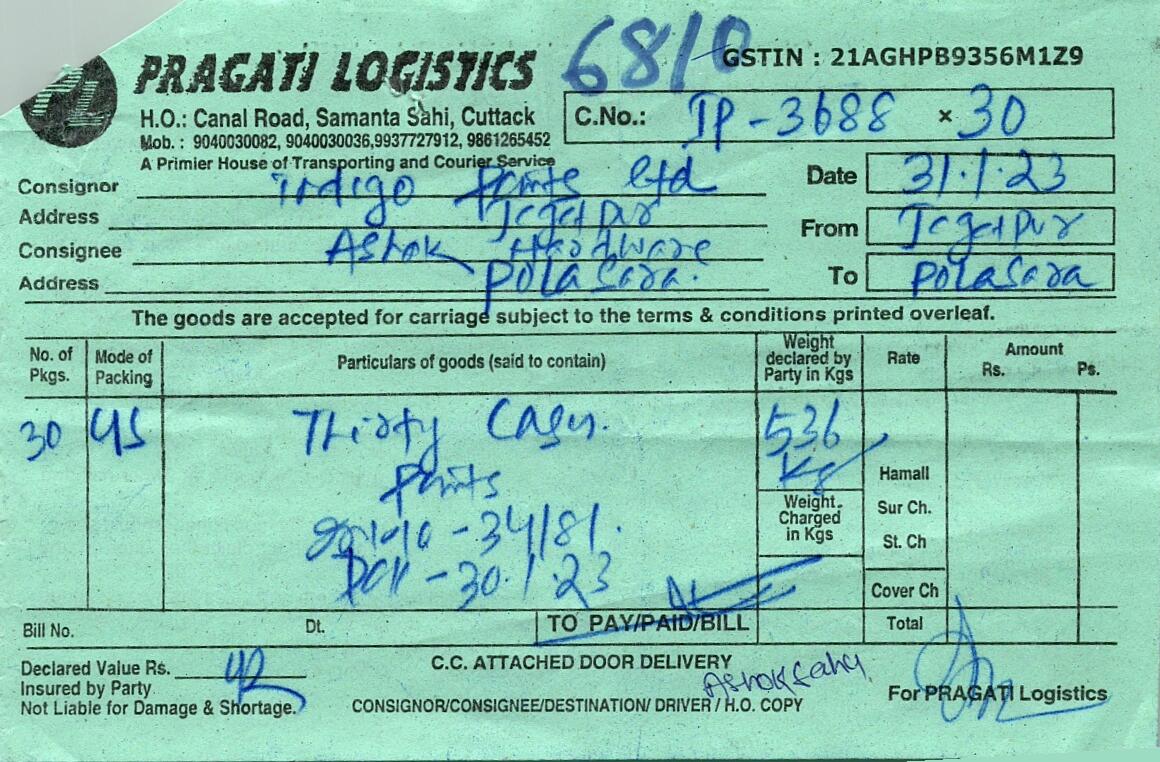 6810
GSTIN : 21AGHPB9356M1Z9
PL
PRAGATI LOGISTICS
H.O.: Canal Road, Samanta Sahi, Cuttack
Mob. : 9040030082, 9040030036,9937727912, 9861265452
A Primier House of Transporting and Courier Service
C.No.: IP - 3688 × 30
Consignor Indigo Paints Ltd
Date 31.1.23
Address Jagatpur
From Jagatpur
Consignee Ashok Hardware
Address Polasara.
To Polasara
The goods are accepted for carriage subject to the terms & conditions printed overleaf.
No. of Pkgs. Mode of Packing Particulars of goods (said to contain) Weight declared by Party in Kgs Rate Amount Rs. Ps.
30 Thirty Cases. 536 Kg
Paints
- 34181.
- 30.1.23
Weight. Charged in Kgs
Hamall
Sur Ch.
St. Ch
Cover Ch
Bill No. Dt. TO PAY/PAID/BILL Total
Declared Value Rs.
C.C. ATTACHED DOOR DELIVERY
Insured by Party
Ashok Sahu
For PRAGATI Logistics
Not Liable for Damage & Shortage.
CONSIGNOR/CONSIGNEE/DESTINATION/ DRIVER / H.O. COPY